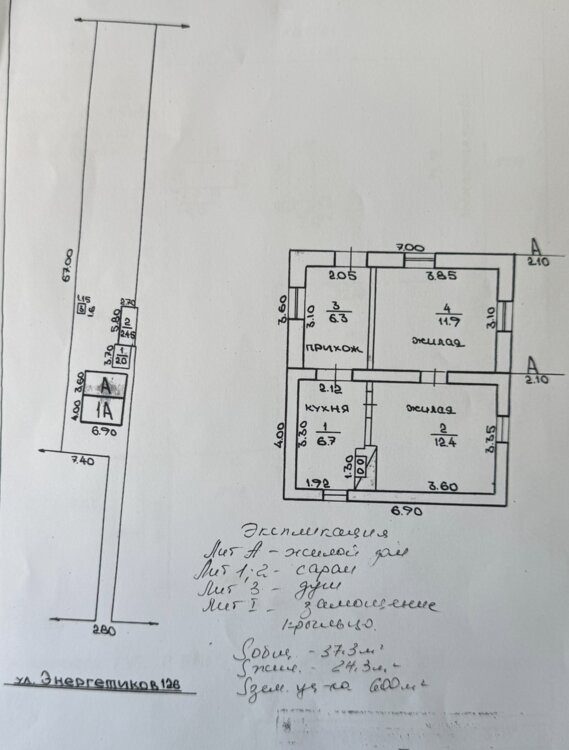 67.00
1.15
1.6
2.70
5.80
2
2.45
3.70
1
2.0
3.60
А
4.00
1А
6.90
7.40
2.80
ул. Энергетиков 126
7.00
А
2.10
2.05
3.85
3.60
3.10
3
6.3
4
11.9
3.10
прихож
жилая
А
2.10
2.12
кухня
жилая
4.00
3.30
1
6.7
2
12.4
3.35
1.30
1.92
3.60
6.90
Экспликация
Лит А - жилой дом
Лит 1, 2 - сараи
Лит 3 - душ
Лит I - замощение
крыльцо.
Sобщ. - 37.3 м²
Sжил. - 24.3 м.²
Sзем. уч-ка 600 м²